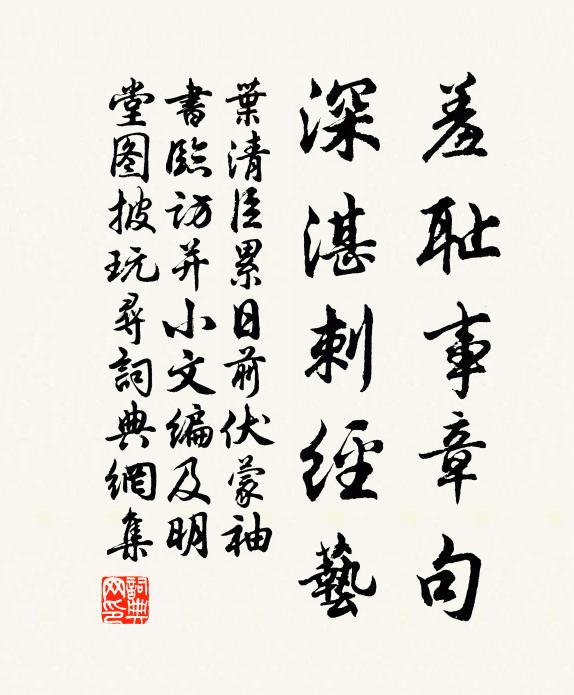 羞耻事章句
深湛刺經藝
葉清臣累日前伏蒙袖
書臨訪并小文編及明
堂图披玩尋詞典網集
詞典网印